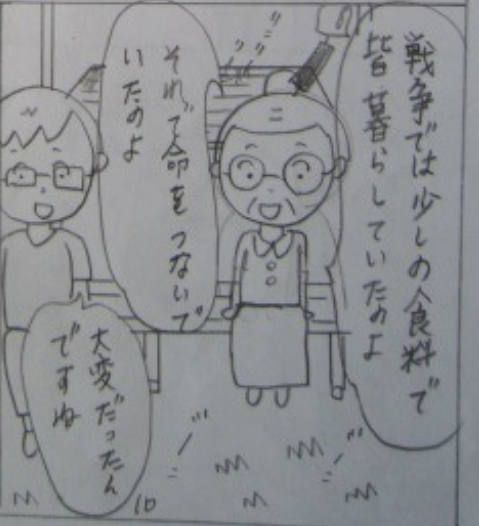 戦争では少しの食料で
皆暮らしていたのよ
それで命をつないで
いたのよ
大変だったん
ですね
10